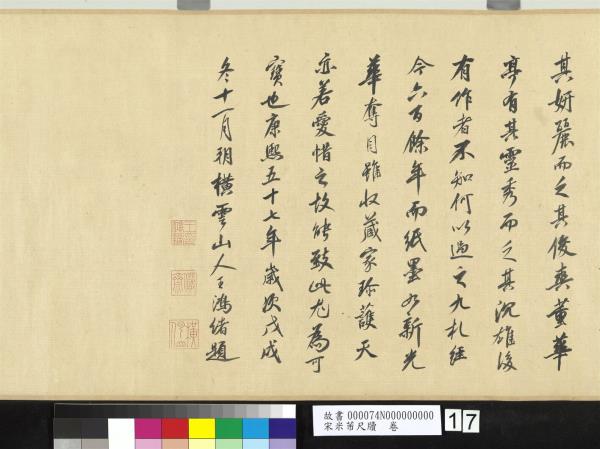 其妍麗而乏其俊爽董華
亭有其靈秀而乏其沉雄後
有作者不知何以過之九札經
今六百餘年而紙墨如新光
華奪目雖收藏家珍護天
亦若愛惜之故能致此尤為可
寶也康熙五十七年歲次戊戌
冬十一月朔橫雲山人王鴻緒題
故書 000074N000000000
宋米芾尺牘 卷
17